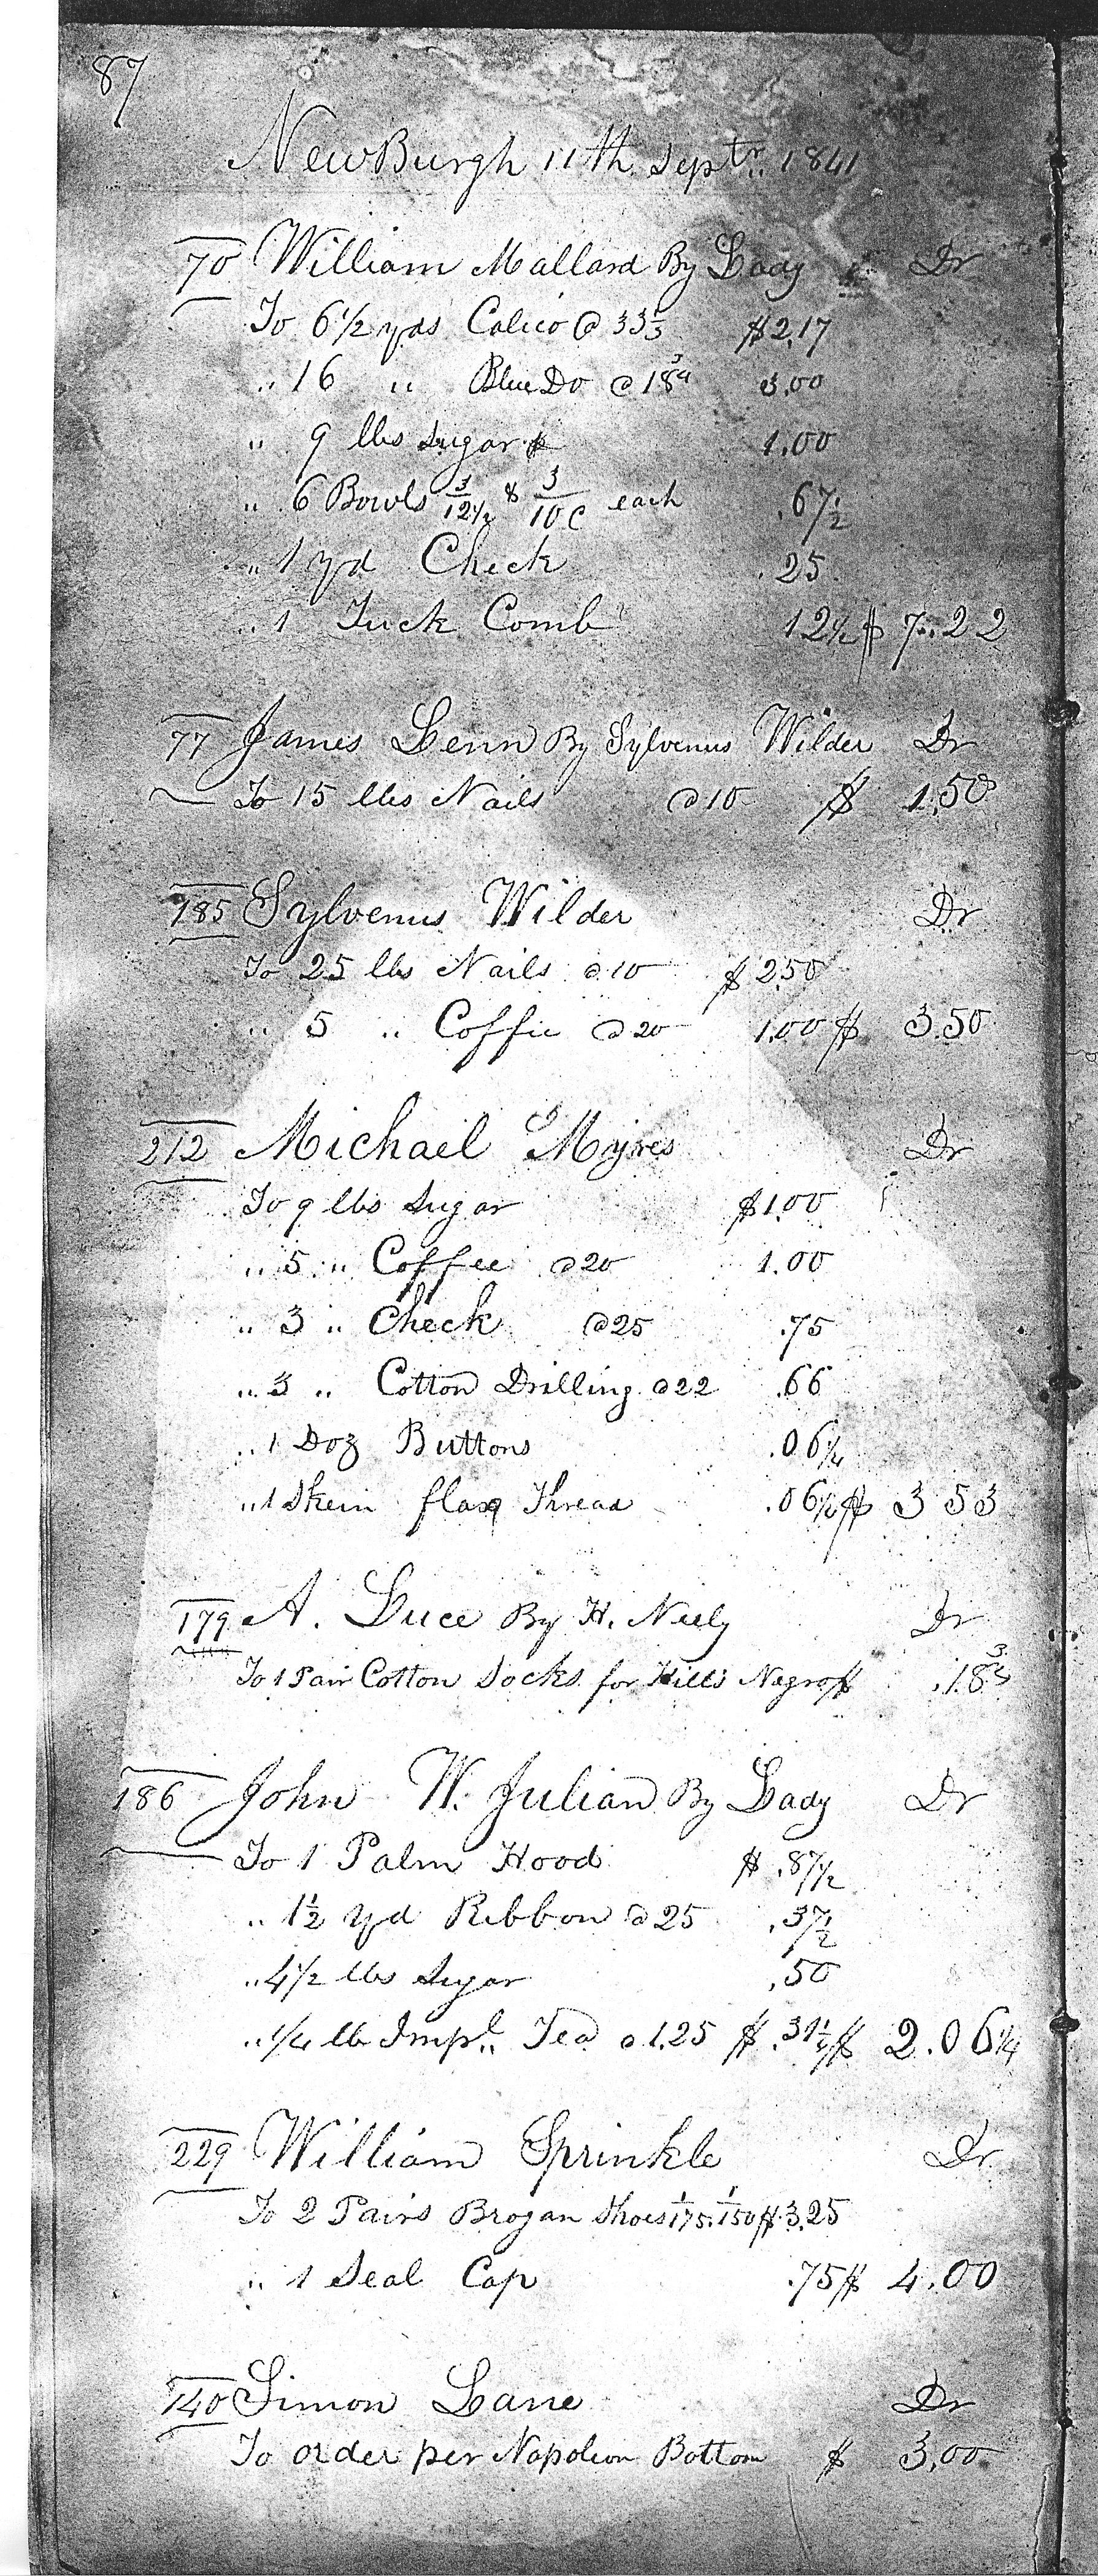 87
NewBurgh 11th Septr. 1841
70 William Mallard By Lady Dr
To 6 1/2 yds Calico @ 33 1/3 $2.17
" 16 " Blue Do @ 18 3/4 3.00
" 9 lbs Sugar $ 1.00
" 6 Bowls 3/12 1/2 & 3/10 c each .67 1/2
" 1 yd Check .25
" 1 Tuck Comb 12 1/2 $ 7.22
77 James Lenn By Sylvenus Wilder Dr
To 15 lbs Nails @ 10 $ 1.50
185 Sylvenus Wilder Dr
To 25 lbs Nails @ 10 $ 2.50
" 5 " Coffie @ 20 1.00 $ 3.50
212 Michael Myres Dr
To 9 lbs Sugar $1.00
" 5 " Coffee @ 20 1.00
" 3 " Check @ 25 .75
" 3 " Cotton Drilling @ 22 .66
" 1 Doz Buttons .06 1/4
" 1 Skein flax Thread .06 1/2 $ 3 53
179 A. Luce By H. Neely Dr
To 1 Pair Cotton Socks for Hills Negro $ .18 3/4
186 John W. Julian By Lady Dr
To 1 Palm Hood $ .87 1/2
" 1 1/2 yd Ribbon @ 25 .37 1/2
" 4 1/2 lbs Sugar .50
" 1/4 lb Impl. Tea @ 1.25 $ .31 1/4 $ 2.06 1/4
229 William Sprinkle Dr
To 2 Pairs Brogan Shoes 1/175. 1/150 $ 3.25
" 1 Seal Cap .75 $ 4.00
140 Simon Lane Dr
To order per Napoleon Bottom $ 3.00